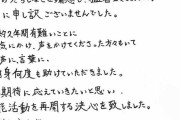 に申し訳ございませんでした。
約2年間有難いことに
気にかけ、声をかけてくださった方々もいて
声に、言葉に、
自身何度も助けていただきました。
期待に応えたいと思い、
能活動を再開する決心を致しました。